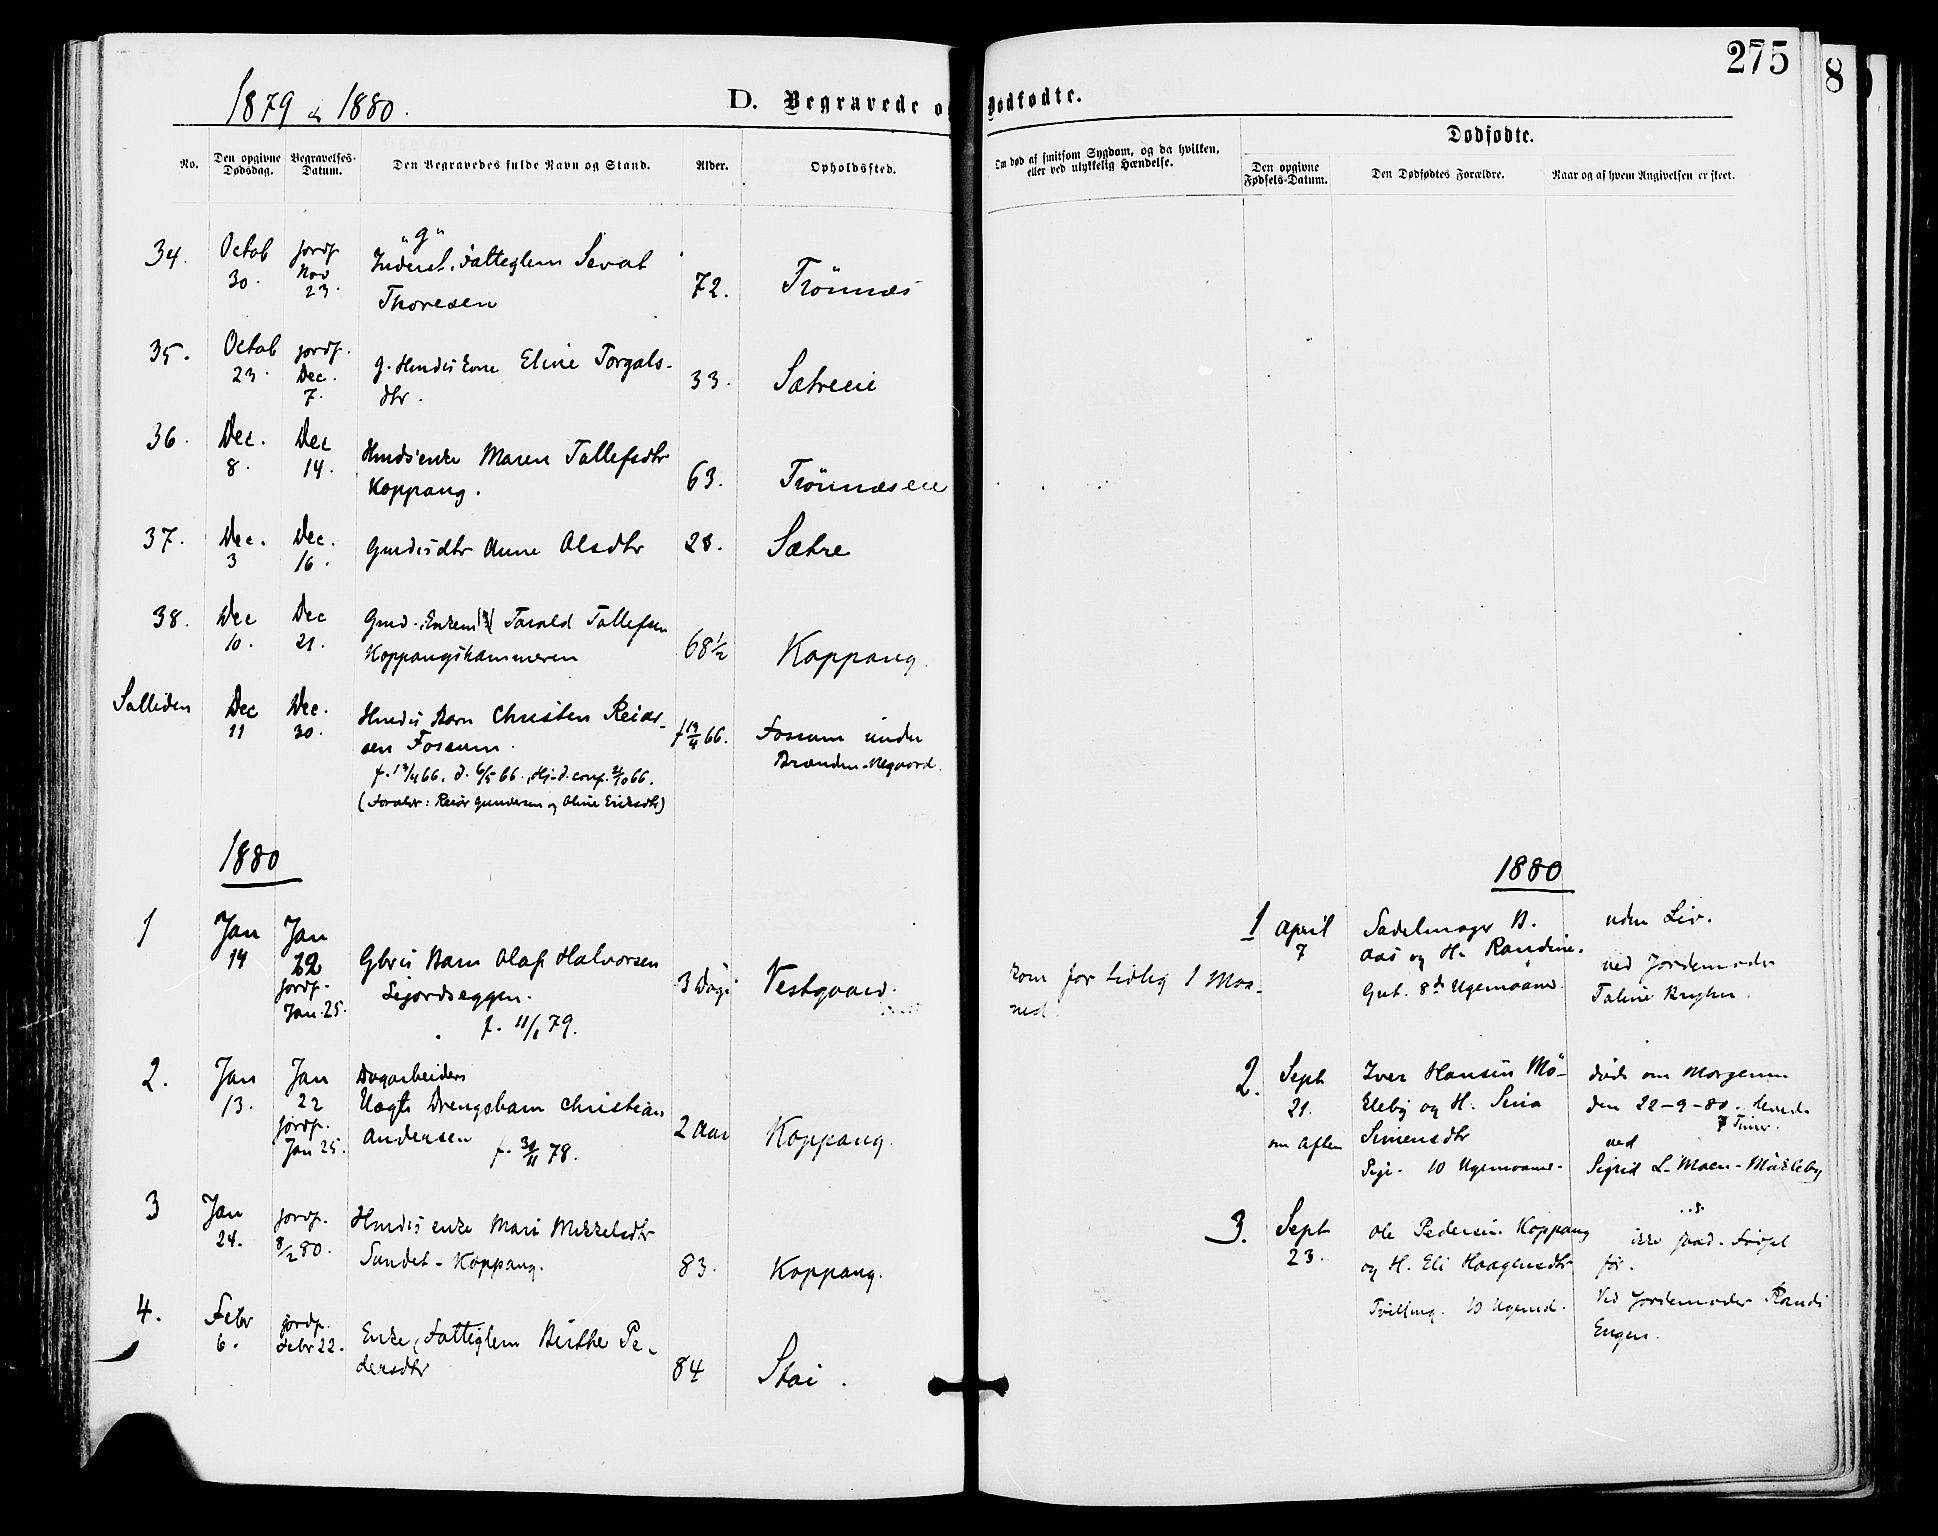 275
8
1879 & 1880.
D. Begravede og Dødfødte.
Dødfødte.
No.
Den opgivne Dødsdag.
Begravelses-Datum.
Den Begravedes fulde Navn og Stand.
Alder.
Opholdssted.
Om død af smitsom Sygdom, og da hvilken,
eller ved ulykkelig Hændelse.
Den opgivne Fødsels-Datum.
Den Dødfødtes Forældre.
Naar og af hvem Angivelsen er skeet.
"g"
34. Octob jordf.
30. Nov 23. Inderst. Fatteglem Sevat
Thoresen 72. Trönnæs
35. Octob jordf.
23. Dec. 7. g. Hmds Kone Eline Torgals-
dtr. 33. Sætreeie
36. Dec. Dec
8. 14. Hmds enke Maren Tollefsdtr
Koppang. 63. Trönnæseie
37. Dec. Dec.
3 16. Gmds dtr Anne Olsdtr 28. Sætre
38. Dec Dec
10. 21. Gmd. Enkem Tarald Tollefsen
Koppangskammeren 68½ Koppang.
Solliden Dec Dec.
11 30. Hmds Barn Christen Reiar-
sen Fossum. f 13/4 66. Fossum under
Brænden-Negaard.
f. 13/4 66. d. 6/5 66. Hj. d. conf.
(Foraldr: Reiar Gundersen og Oline Eriksdtr)
1880
1 Jan Jan
14 22
jordf.
Jan. 25. Gbr's Barn Olaf Halvorsen
Sejordseggen.
f. 11/1 79. 3 Dage Vestgaard.
kom for tidlig 1 Maa-
ned.
2. Jan Jan
13. 22
jordf.
Jan 25. Dagarbeiders
Uægte Drengebarn Christian
Andersen f. 30/11 78. 2 Aar Koppang.
3 Jan jordf.
24. 8/2 80. Hmds enke Mari Mikkelsdtr
Sundet - Koppang. 83. Koppang.
4. Febr jordf.
6. Febr 22. Enke, Fattiglem Birthe Pe-
dersdtr 84 Stai.
1880
1 April
7 Sadelmager B.
Aas og H. Randine.
Gut. 8de Ugemaane. uden Liv.
ved Jordemoder
Taline Bryhn.
2. Sept
21.
om Aften Iver Hansen Mö-
kleby og H. Sina
Simensdtr
Pige. 10 Ugemaane. döde om Morgenen
den 22-9-80. levede
7 Timer.
ved
Sigrid L. Moen-Mökleby
3. Sept
23. Ole Pedersen Koppang
og H. Eli Haagensdtr
Tvilling. 10 Ugemd. ikke
för.
Ved Jordemoder Randi
Engen.